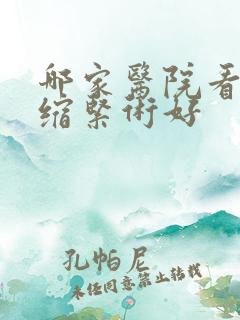 哪家醫院看
缩緊術好
孔帕尼
未任同意禁止转载